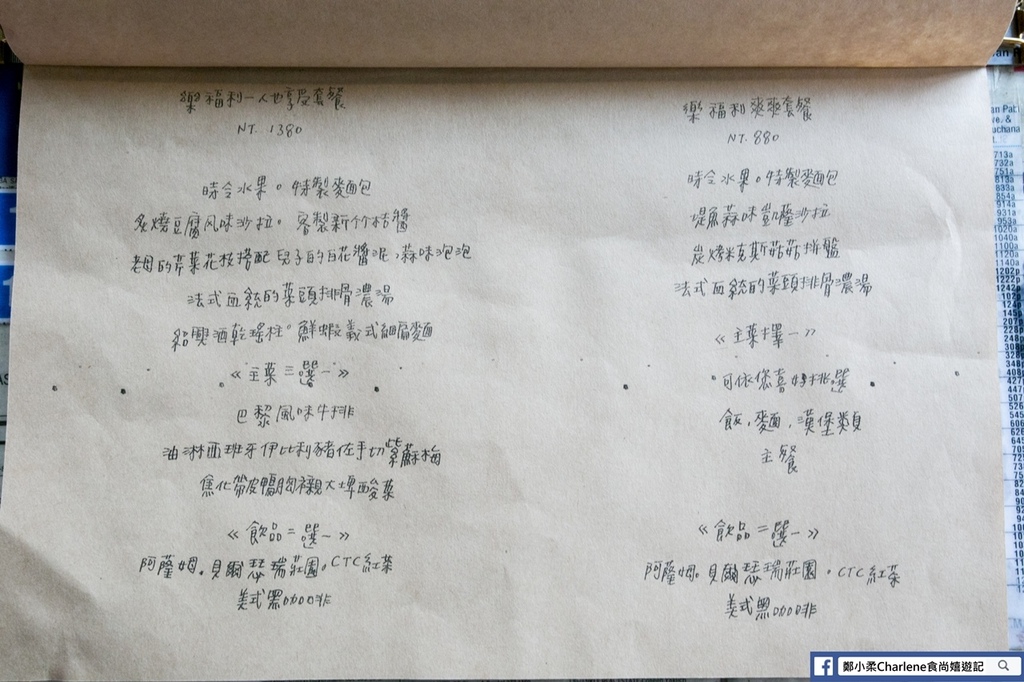 樂福利一人也享受套餐
NT. 1380
時令水果。特製麵包
炙燒豆腐風味沙拉。客製新竹桔醬
老母的芹菜花枝搭配兒子的白花醬泥,蒜味泡泡
法式血統的菜頭排骨濃湯
紹興酒乾瑤柱。鮮蝦義式細扁麵
《主菜三選一》
巴黎風味牛排
油淋西班牙伊比利豬佐手切紫蘇梅
焦化帶皮鴨胸襯大埤酸菜
《飲品二選一》
阿薩姆。貝爾瑟瑞莊園。CTC紅茶
美式黑咖啡
樂福利爽爽套餐
NT. 880
時令水果。特製麵包
鯷魚蒜味凱薩沙拉
炭烤米克斯菇菇拼盤
法式血統的菜頭排骨濃湯
《主菜擇一》
可依您喜好排選
飯,麵,漢堡類
主餐
《飲品二選一》
阿薩姆。貝爾瑟瑞莊園。CTC紅茶
美式黑咖啡
鄭小柔Charlene食尚嬉遊記